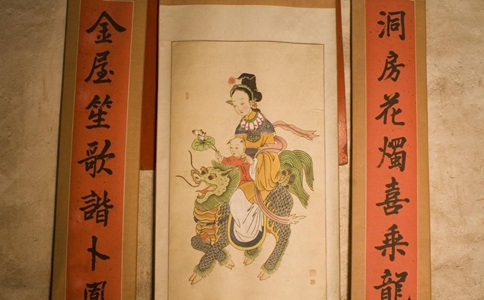 洞房花燭喜乘龍
金屋笙歌諧卜鳳